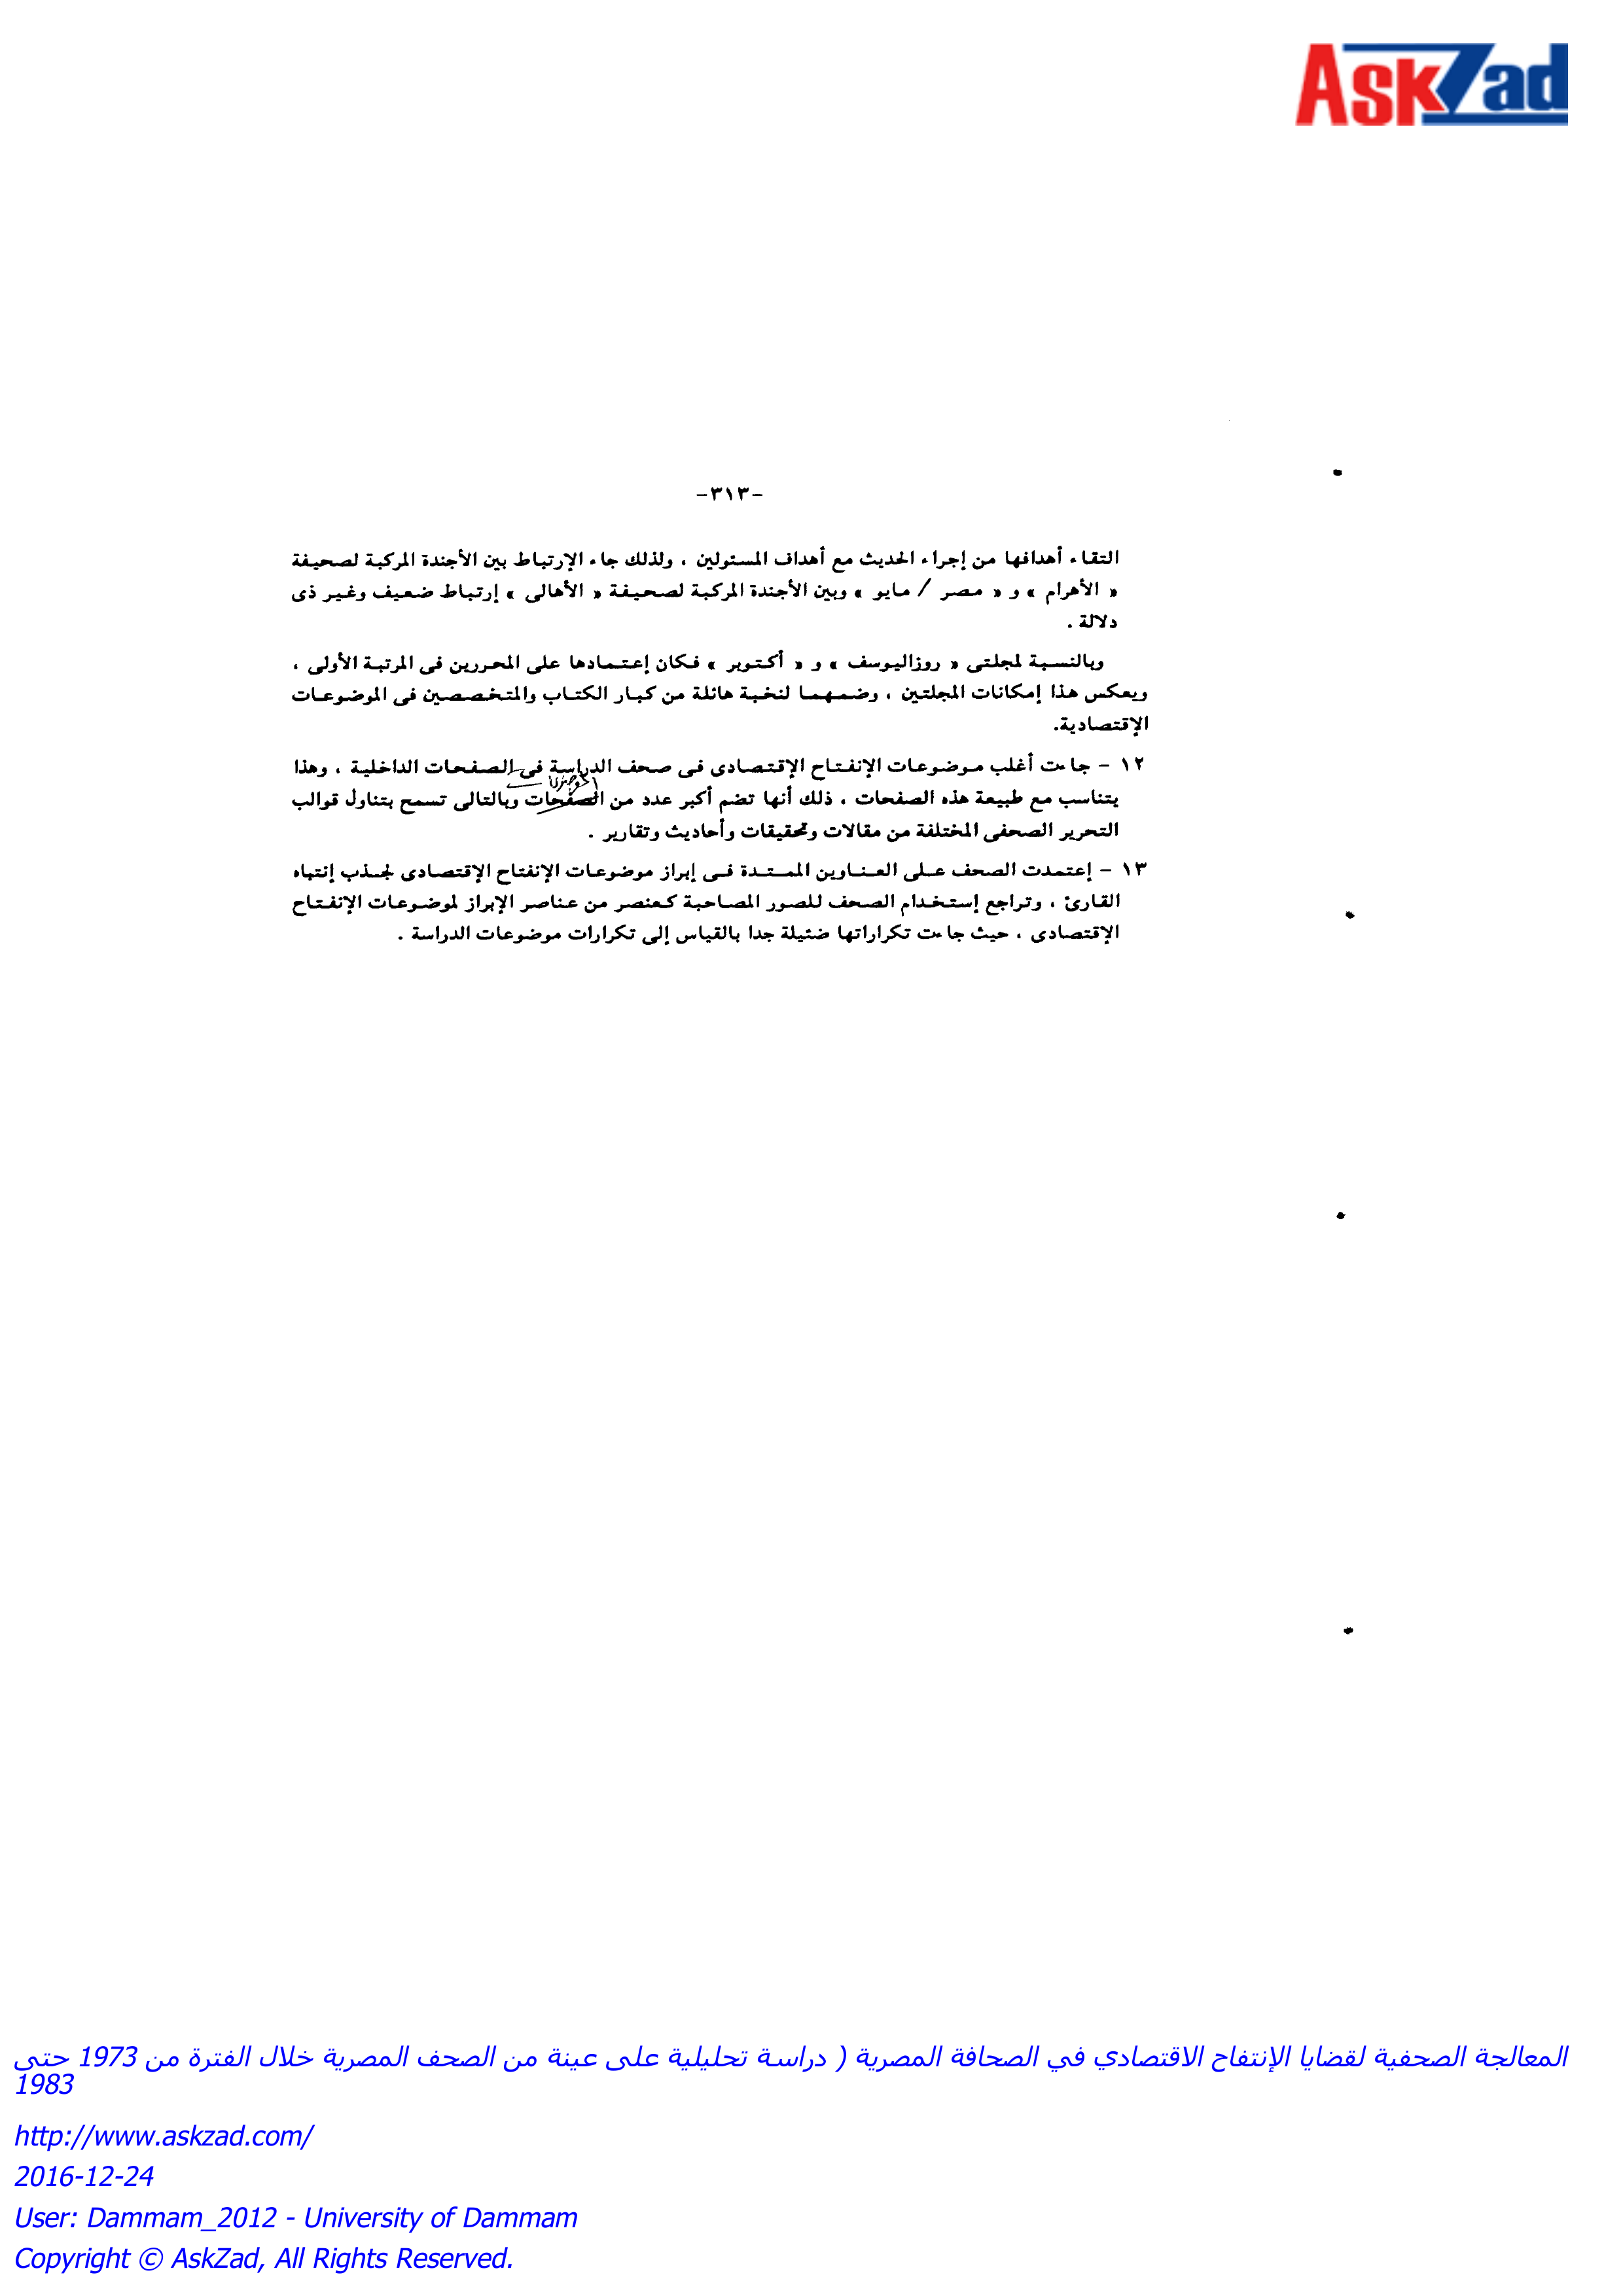 AskZad
-٣١٣-
التقاء أهدافها من إجراء الحديث مع أهداف المسئولين ، ولذلك جاء الإرتباط بين الأجندة المركبة لصحيفة
« الأهرام » و « مصر / مايو » وبين الأجندة المركبة لصحيفة « الأهالى » إرتباط ضعيف وغير ذى
دلالة .
وبالنسبة لمجلتى « روزاليوسف » و « أكتوبر » فكان إعتمادها على المحررين فى المرتبة الأولى ،
ويعكس هذا إمكانات المجلتين ، وضمهما لنخبة هائلة من كبار الكتاب والمتخصصين فى الموضوعات
الإقتصادية.
١٢ - جاءت أغلب موضوعات الإنفتاح الإقتصادى فى صحف الدراسة فى الصفحات الداخلية ، وهذا
يتناسب مع طبيعة هذه الصفحات ، ذلك أنها تضم أكبر عدد من الصفحات وبالتالى تسمح بتناول قوالب
التحرير الصحفى المختلفة من مقالات وتحقيقات وأحاديث وتقارير .
١٣ - إعتمدت الصحف على العناوين الممتدة فى إبراز موضوعات الإنفتاح الإقتصادى لجذب إنتباه
القارئ ، وتراجع إستخدام الصحف للصور المصاحبة كعنصر من عناصر الإبراز لموضوعات الإنفتاح
الإقتصادى ، حيث جاءت تكراراتها ضئيلة جدا بالقياس إلى تكرارات موضوعات الدراسة .
المعالجة الصحفية لقضايا الإنتفاح الاقتصادي في الصحافة المصرية ( دراسة تحليلية على عينة من الصحف المصرية خلال الفترة من 1973 حتى
1983
http://www.askzad.com/
2016-12-24
User: Dammam_2012 - University of Dammam
Copyright © AskZad, All Rights Reserved.